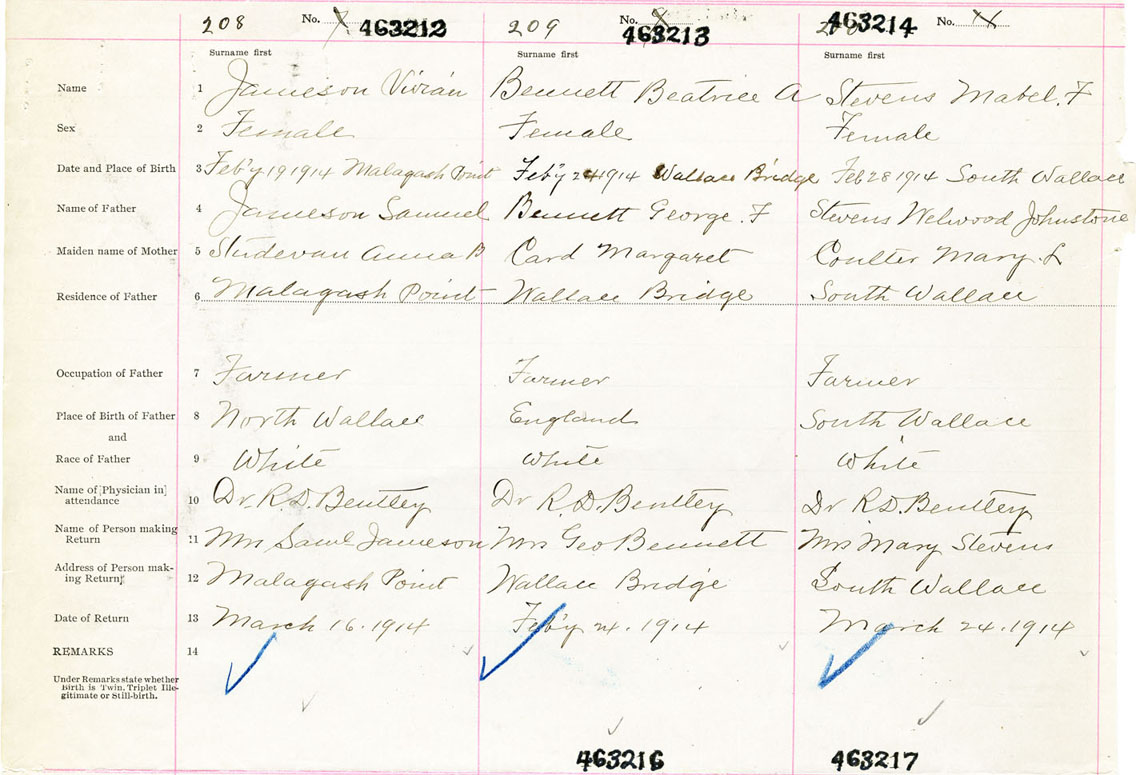 208 No. 463212 209 No. 463213 463214 No.
Surname first Surname first Surname first
Name 1 Jameson Vivian Bennett Beatrice A Stevens Mabel. F
Sex 2 Female Female Female
Date and Place of Birth 3 Feb'y 19 1914 Malagash Point Feb'y 24 1914 Wallace Bridge Feb 28 1914 South Wallace
Name of Father 4 Jameson Samuel Bennett George. F Stevens Welwood Johnstone
Maiden name of Mother 5 Studevan Anna B Card Margaret Coulter Mary. L
Residence of Father 6 Malagash Point Wallace Bridge South Wallace
Occupation of Father 7 Farmer Farmer Farmer
Place of Birth of Father 8 North Wallace England South Wallace
and
Race of Father 9 White White White
Name of [Physician in]
attendance 10 Dr. R. D. Bentley Dr R. D. Bentley Dr R D. Bentley
Name of Person making
Return 11 Mrs Saml Jameson Mrs Geo Bennett Mrs Mary Stevens
Address of Person mak-
ing Return 12 Malagash Point Wallace Bridge South Wallace
Date of Return 13 March 16. 1914 Feb'y 24. 1914 March 24. 1914
REMARKS 14
Under Remarks state whether
Birth is Twin. Triplet Ille-
gitimate or Still-birth.
463216 463217